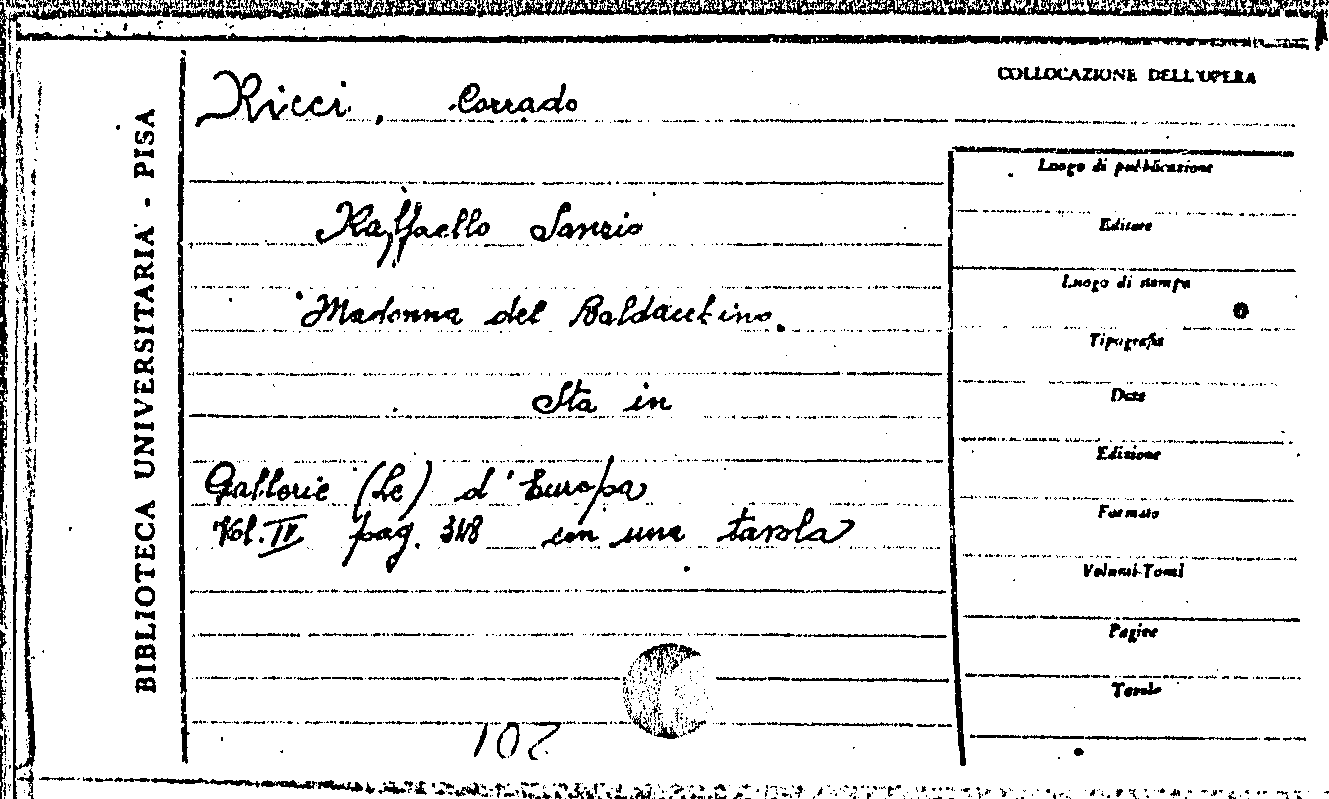 BIBLIOTECA UNIVERSITARIA - PISA
Ricci, Corrado
Raffaello Sanzio
Madonna del Baldacchino.
Sta in
Gallerie (Le) d'Europa
Vol. IV pag. 348 con una tavola
102
COLLOCAZIONE DELL'OPERA
Luogo di pubblicazione
Editore
Luogo di stampa
Tipografia
Data
Edizione
Formato
Volumi-Tomi
Pagine
Tavole